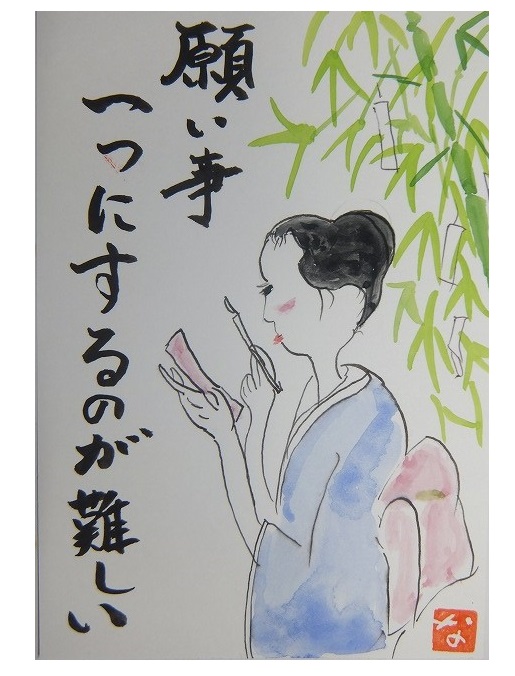 願い事
一つにするのが難しい
な